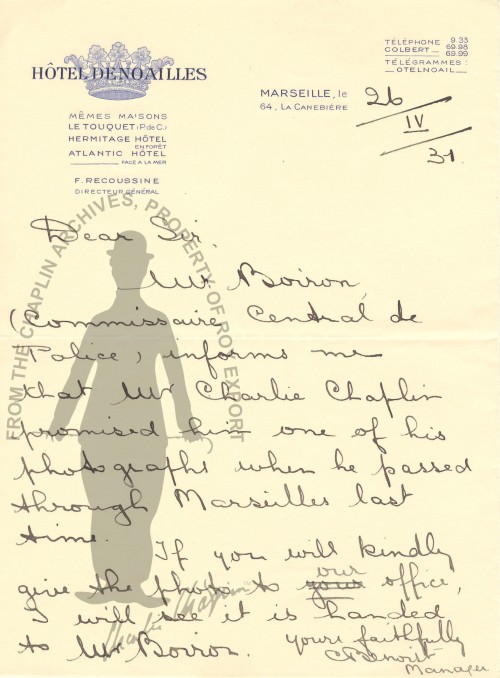 HÔTEL DE NOAILLES
MÊMES MAISONS
LE TOUQUET (P. de C.)
HERMITAGE HÔTEL
EN FORÊT
ATLANTIC HÔTEL
FACE A LA MER
F. RECOUSSINE
DIRECTEUR GÉNÉRAL
TÉLÉPHONE 9.33
COLBERT 69.98
69.99
TÉLÉGRAMMES:
OTELNOAIL
MARSEILLE, le 26
64, LA CANEBIÈRE
IV
31.
Dear Sir.
Mr Boiron,
(Commissaire Central de
Police) informs me
that Mr Charlie Chaplin
promised him one of his
photographs when he passed
through Marseilles last
time.
If you will kindly
give the photo to your our office,
I will see it is handed
to Mr Boiron. yours faithfully
CBenoist
Manager
FROM THE CHAPLIN ARCHIVES, PROPERTY OF ROY EXPORT
Charlie Chaplin